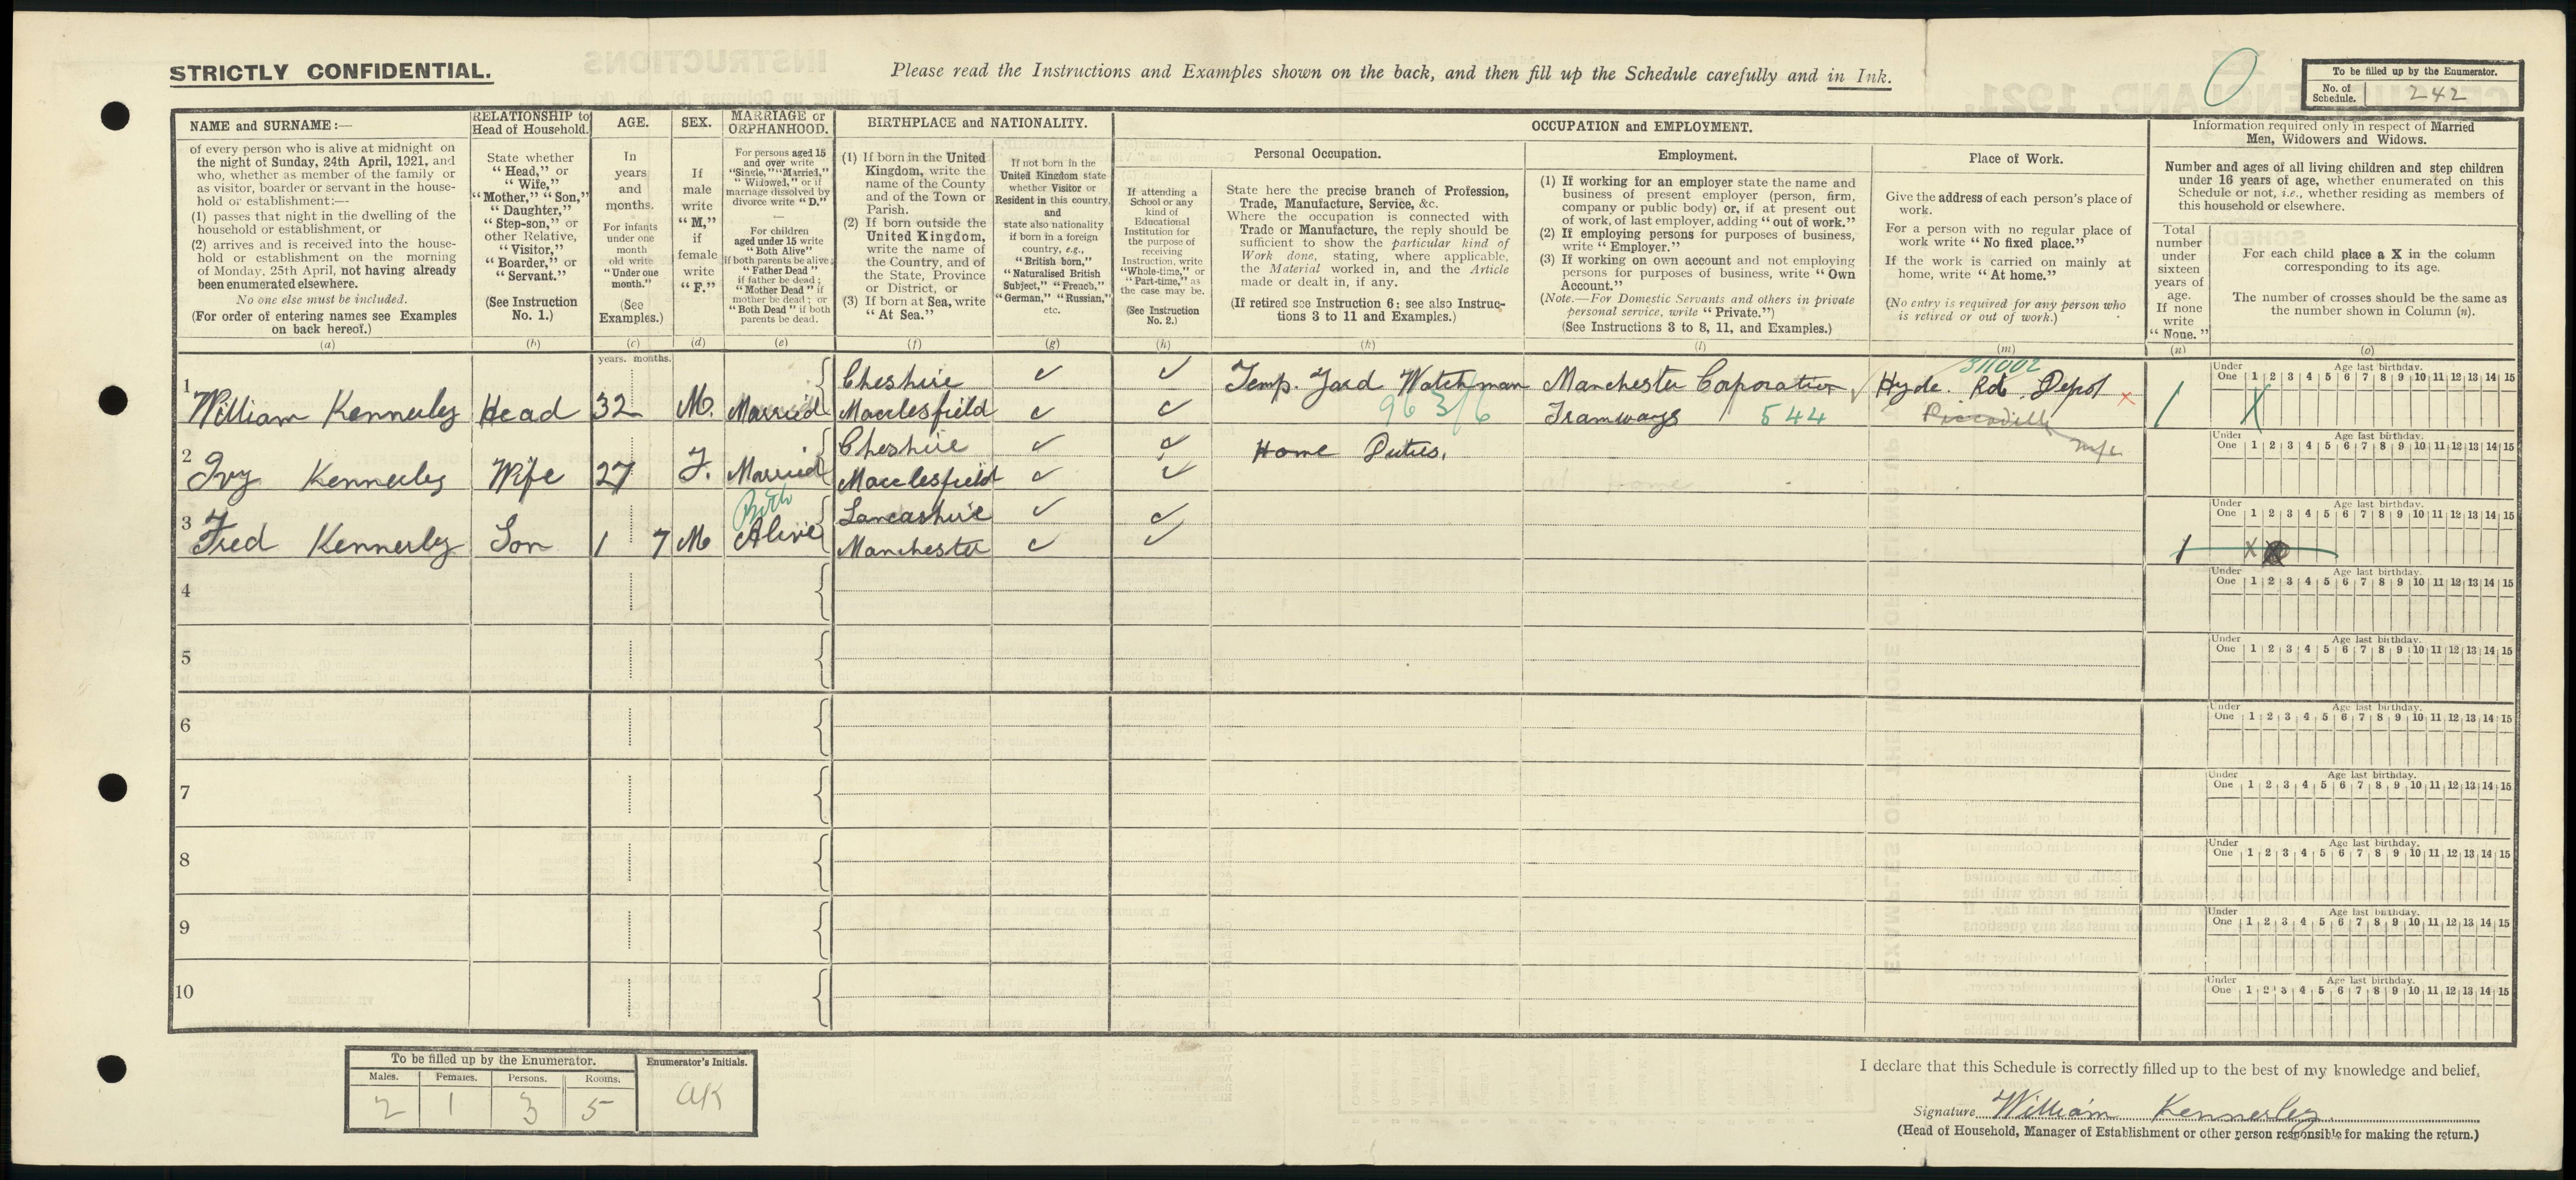 STRICTLY CONFIDENTIAL.
Please read the Instructions and Examples shown on the back, and then fill up the Schedule carefully and in Ink.
0
To be filled up by the Enumerator.
No. of Schedule. 242
NAME and SURNAME:—
of every person who is alive at midnight on
the night of Sunday, 24th April, 1921, and
who, whether as member of the family or
as visitor, boarder or servant in the house-
hold or establishment:—
(1) passes that night in the dwelling of the
household or establishment, or
(2) arrives and is received into the house-
hold or establishment on the morning
of Monday, 25th April, not having already
been enumerated elsewhere.
No one else must be included.
(For order of entering names see Examples
on back hereof.)
(a)
RELATIONSHIP to
Head of Household.
State whether
"Head," or
"Wife,"
"Mother," "Son,"
"Daughter,"
"Step-son," or
other Relative,
"Visitor,"
"Boarder," or
"Servant."
(See Instruction
No. 1.)
(b)
AGE.
In
years
and
months.
For infants
under one
month
old write
"Under one
month."
(See
Examples.)
(c)
SEX.
If
male
write
"M,"
if
female
write
"F."
(d)
MARRIAGE or
ORPHANHOOD.
For persons aged 15
and over write
"Single," "Married,"
"Widowed," or if
marriage dissolved by
divorce write "D."
—
For children
aged under 15 write
"Both Alive"
if both parents be alive;
"Father Dead"
if father be dead;
"Mother Dead" if
mother be dead; or
"Both Dead" if both
parents be dead.
(e)
BIRTHPLACE and NATIONALITY.
(1) If born in the United
Kingdom, write the
name of the County
and of the Town or
Parish.
(2) If born outside the
United Kingdom,
write the name of
the Country, and of
the State, Province
or District, or
(3) If born at Sea, write
"At Sea."
(f)
If not born in the
United Kingdom state
whether Visitor or
Resident in this country,
and
state also nationality
if born in a foreign
country, e.g.,
"British born,"
"Naturalised British
Subject," "French,"
"German," "Russian,"
etc.
(g)
OCCUPATION and EMPLOYMENT.
If attending a
School or any
kind of
Educational
Institution for
the purpose of
receiving
Instruction, write
"Whole-time," or
"Part-time," as
the case may be.
(See Instruction
No. 2.)
(h)
Personal Occupation.
State here the precise branch of Profession,
Trade, Manufacture, Service, &c.
Where the occupation is connected with
Trade or Manufacture, the reply should be
sufficient to show the particular kind of
Work done, stating, where applicable,
the Material worked in, and the Article
made or dealt in, if any.
(If retired see Instruction 6: see also Instruc-
tions 3 to 11 and Examples.)
(k)
Employment.
(1) If working for an employer state the name and
business of present employer (person, firm,
company or public body) or, if at present out
of work, of last employer, adding "out of work."
(2) If employing persons for purposes of business,
write "Employer."
(3) If working on own account and not employing
persons for purposes of business, write "Own
Account."
(Note.—For Domestic Servants and others in private
personal service, write "Private.")
(See Instructions 3 to 8, 11, and Examples.)
(l)
Place of Work.
Give the address of each person's place of
work.
For a person with no regular place of
work write "No fixed place."
If the work is carried on mainly at
home, write "At home."
(No entry is required for any person who
is retired or out of work.)
(m)
Information required only in respect of Married
Men, Widowers and Widows.
Number and ages of all living children and step children
under 16 years of age, whether enumerated on this
Schedule or not, i.e., whether residing as members of
this household or elsewhere.
Total
number
under
sixteen
years of
age.
If none
write
"None."
(n)
For each child place a X in the column
corresponding to its age.
The number of crosses should be the same as
the number shown in Column (n).
(o)
years. months.
1 William Kennerley Head 32 M. Married Cheshire Macclesfield Temp. Yard Watchman Manchester Corporation Tramways Hyde. Rd. Depot 1 X
963/6 544 311002
Piccadilly M/c
2 Ivy Kennerley Wife 27 F. Married Cheshire Macclesfield Home Duties.
at home
3 Fred Kennerley Son 1 7 M Both Alive Lancashire Manchester 1 X
4
5
6
7
8
9
10
Under One Age last birthday.
1 2 3 4 5 6 7 8 9 10 11 12 13 14 15
To be filled up by the Enumerator.
Males. Females. Persons. Rooms.
2 1 3 5
Enumerator's Initials.
AK
I declare that this Schedule is correctly filled up to the best of my knowledge and belief,
Signature William Kennerley.
(Head of Household, Manager of Establishment or other person responsible for making the return.)